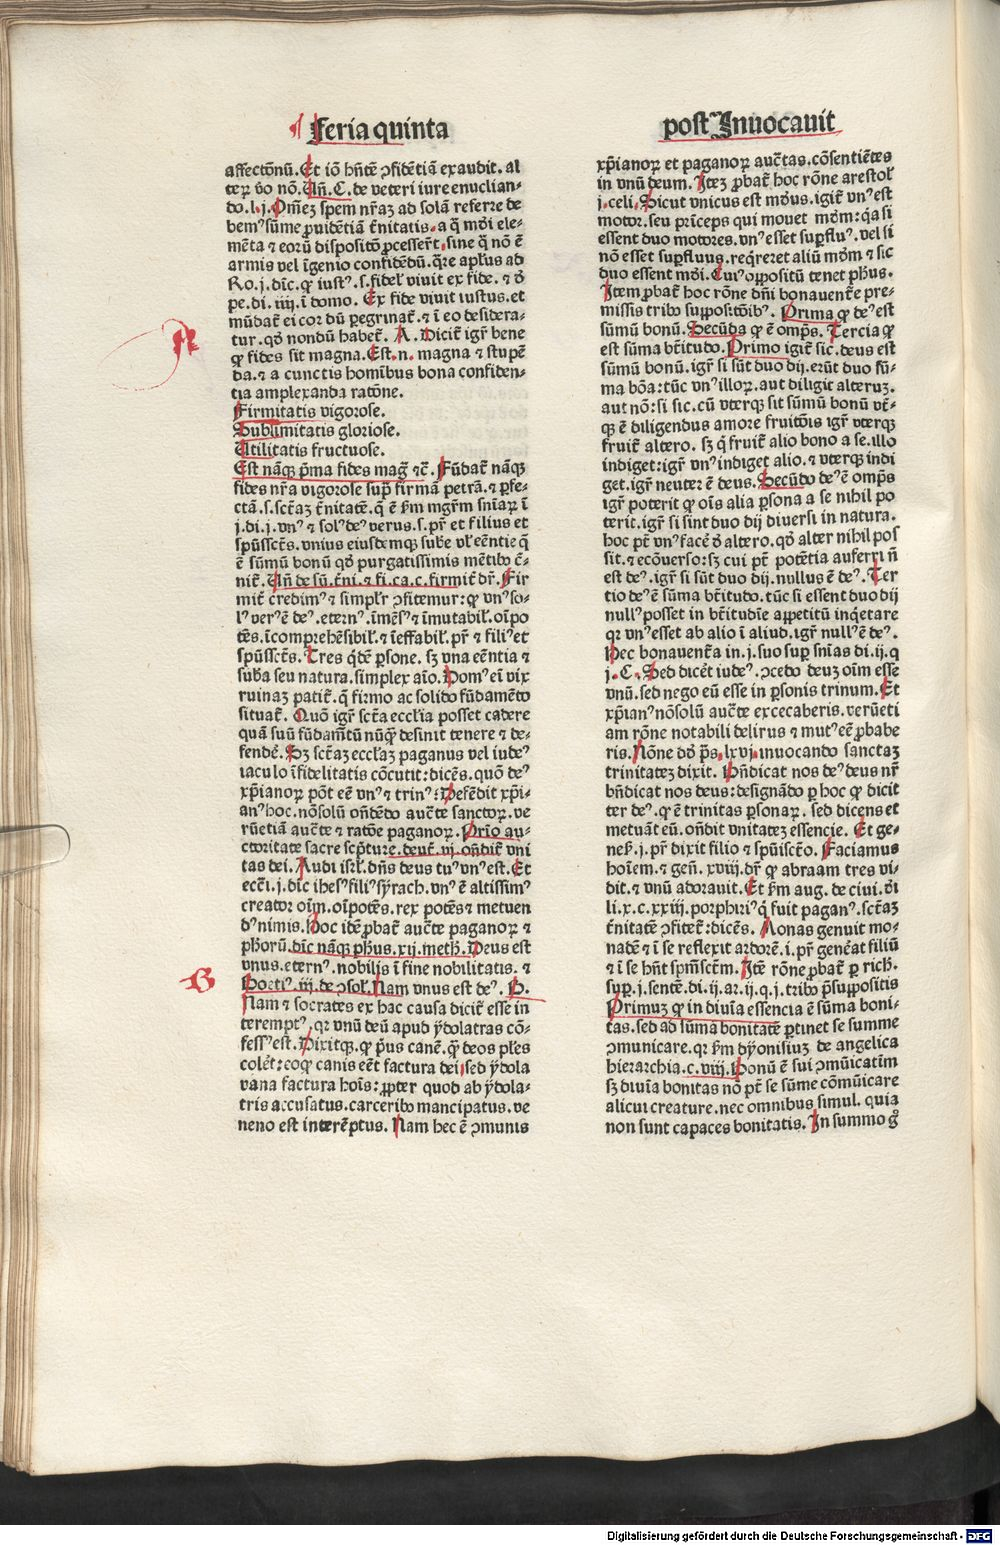 feria quinta
post Inuocauit
affectōnū. Et iō hn̄tē ↄfidētiā exaudit. al
ter v̓o nō. Un̄. C. de veteri iure enuclian⸗
do. l. j. Om̄ez spem nr̄az ad solā referre de
bemꝰ sūme ꝓuidētiā t̄nitatis. a q̄ mūdi ele⸗
mēta ⁊ eorū dispositō ꝓcesser̄t. sine q̄ nō ē
armis vel īgenio confidēdū. qr̄e apl̄us ad
Ro. j. dīc. ꝙ iustꝰ. s. fidel̄ viuit ex fide. ⁊ ō
pe. di. iiij. ī domo. Ex fide viuit iustus. et
mūdat̄ ei cor dū ꝑegrinat̄. ⁊ ī eo desidera⸗
tur. qd̓ nondū habet̄. A. Dicit̄ igr̄ bene
ꝙ fides sit magna. Est. n. magna ⁊ stupē
da. ⁊ a cunctis homībus bona confiden⸗
tia amplexanda ratōne.
Firmitatis vigorose.
Sublimitatis gloriose.
Utilitatis fructuose.
Est nāꝙ p̄ma fides mag̃ ⁊c̄. Fūdat̄ nāꝙ
fides nr̄a vigorose supͣ firmā petrā. ⁊ ꝑfe⸗
ctā. s. sct̄az t̄nitatē. q̄ ē ẜm mgr̄m sn̄iaꝝ ī
j. di. j. vnꝰ ⁊ solꝰ deꝰ verus. s. pr̄ et filius et
spūsscts̄. vnius eiusdemqꝫ sube vl̓ eēntie q̄
ē sūmū bonū qd̓ purgatissimis mētibꝰ c̄⸗
nit̄. Un̄ de sū. t̄ni. ⁊ fi. ca. c. firmit̄ dr̄. Fir
mit̄ credimꝰ ⁊ simpl̓r ↄfitemur: ꝙ vnꝰ so⸗
lꝰ verꝰ ē deꝰ. eternꝰ. īmēsꝰ ⁊ īmutabil̄. oīpo
tēs. īcomprehēsibil̄. ⁊ īeffabil̄. pr̄ ⁊ filiꝰ et
spūsscts̄. Tres qdē ꝑsone. sꝫ vna eēntia ⁊
suba seu natura. simplex aīo. Domꝰ ei vix
ruinaz patit̄. q̄ firmo ac solido fūdamēto
situat̄. Quō igr̄ sct̄a eccl̓ia posset cadere
quā suū fūdam̄tū nūqͣ desinit tenere ⁊ de⸗
fende̓. Sꝫ sct̄az eccl̓az paganus vel iudeꝰ
iaculo īfidelitatis cōcutit: dicēs. quō deꝰ
xp̄ianoꝝ pōt eē vnꝰ ⁊ trinꝰ: Defēdit xp̄i⸗
anꝰ hoc. nōsolū ondēdo aucte sanctoꝝ. ve
rūetiā aucte ⁊ ratōe paganoꝝ. Prīo au⸗
ctoritate sacre scp̄ture. deut̄. vj. ondit̄ vni
tas dei. Audi isrl̄. dn̄s deus tuꝰ vnꝰ est. Et
ecci. j. dīc ihesꝰ filiꝰ syrach. vnꝰ ē altissimꝰ
creator oīm. oīpotēs. rex potēs ⁊ metuen
dꝰ nimis. Hoc idē ꝓbat̄ aucte paganoꝝ ⁊
ph̄orū. dīc nāqꝫ ph̄us. xij. meth̄. Deus est
vnus. eternꝰ. nobilis ī fine nobilitatis. ⁊
Boetiꝰ. iij. de ↄsol̄. Nam vnus est deꝰ. B.
Nam ⁊ socrates ex hac causa dicit̄ esse in
teremptꝰ. qꝛ vnū deū apud ydolatras cō⸗
fessꝰ est. Dixitqꝫ. ꝙ p̄us canē. qͣ deos ples
colēt: eoꝙ canis eēt factura dei. sed ydola
vana factura hoīs: ꝓpter quod ab ydola⸗
tris accusatus. carceribꝰ mancipatus. ve
neno est interēptus. Nam hec ē ↄmunis
xp̄ianoꝝ et paganoꝝ auctas. cōsentiētes
in vnū deum. Itez ꝓbat̄ hoc rōne arestol̄
j. celi. Sicut vnicus est mūdus. igit̄ vnꝰ est
motor. seu prīceps qui mouet mūdm: qꝛ si
essent duo motores. vnꝰ esset suꝑfluꝰ. vel si
nō esset suꝑfluus. reqreret aliū mūdm ⁊ sic
duo essent mūdi. Cuiꝰ oppositū tenet ph̄us.
Item ꝓbat̄ hoc rōne dn̄i bonauent̄e pre⸗
missis tribꝰ suppositōibꝰ. Prima ꝙ deꝰ est
sūmū bonū. Secūda ꝙ ē omp̄s. Tercia ꝙ
est sūma bt̄itudo. Primo igit̄ sic. deus est
sūmū bonū. igr̄ si sūt duo dij. erūt duo sū⸗
ma bōa: tūc vnꝰ illoꝝ. aut diligit alteruz.
aut nō: si sic. cū vterqꝫ sit sūmū bonū vt̄⸗
qꝫ ē diligendus amore fruitōis igr̄ vterqꝫ
fruit̄ altero. sꝫ q̄ fruit̄ alio bono a se. illo
indiget: igr̄ vnꝰ indiget alio. ⁊ vterqꝫ indi
get. igr̄ neuter ē deus. Secūdo deꝰ ē omp̄s
igr̄ poterit ꝙ oīs alia ꝑsona a se nihil po
terit. igr̄ si sint duo dij diuersi in natura.
hoc pt̄ vnꝰ facē d̓ altero. qd̓ alter nihil pos
sit. ⁊ ecōuerso: sꝫ cui pt̄ potētia auferri n̄
est deꝰ. igr̄ si sūt duo dij. nullus ē deꝰ. Ter
tio deꝰ ē sūma bt̄itudo. tūc si essent duo dij
nullꝰ posset in bt̄itudīe appetitū inqetare
qꝛ vnꝰ esset ab alio ī aliud. igr̄ nullꝰ ē deꝰ.
Hec bonauent̄a in. j. suo suꝑ snīas di. ij. q
j. C. Sed dicēt iudeꝰ. ↄcedo deuz oīm esse
vnū. sed nego eū esse in ꝑsonis trinum. Et
xp̄ianꝰ nōsolū aucte excecaberis. verūeti
am rōne notabili delirus ⁊ mutꝰ eē ꝓbabe
ris. Nōne dd̓ p̄s. lxvj. inuocando sanctaz
trinitatez dixit. Bn̄dicat nos deꝰ deus nr̄
bn̄dicat nos deus: designādo ꝑ hoc ꝙ dicit
ter deꝰ. ꝙ ē trinitas ꝑsonaꝝ. sed dicens et
metuāt eū. ondit vnitatez essencie. Et ge⸗
nes̄. j. pr̄ dixit filio ⁊ spūiscto. Faciamus
hoīem. ⁊ gen̄. xviij. dr̄ ꝙ abraam tres vi⸗
dit. ⁊ vnū adorauit. Et ẜm aug. de ciui. d̓i
li. x. c. xxiij. porphiriꝰ q̄ fuit paganꝰ. sct̄az
t̄nitatē ↄfitet̄: dicēs. Monas genuit mo⸗
nadē ⁊ ī se reflexit ardorē. i. pr̄ gene̓at filiū
⁊ ī se hn̄t spm̄sctm̄. Itē rōne ꝓbat̄ ꝑ rich̄.
suꝑ. j. sentē. di. ij. ar. ij. q. j. tribꝰ p̄suppositis
Primuz ꝙ in diuīa essencia ē sūma boni⸗
tas. sed ad sūma bonitatē ꝑtinet se summe
ↄmunicare. qꝛ ẜm dyonisiuz de angelica
hierarchia. c. viij. Bonū ē sui ↄmūicatīm
sꝫ diuīa bonitas nō pt̄ se sūme cōmūicare
alicui creature. nec omnibus simul. quia
non sunt capaces bonitatis. In summo g̊
A
B
Digitalisierung gefördert durch die Deutsche Forschungsgemeinschaft - DFG